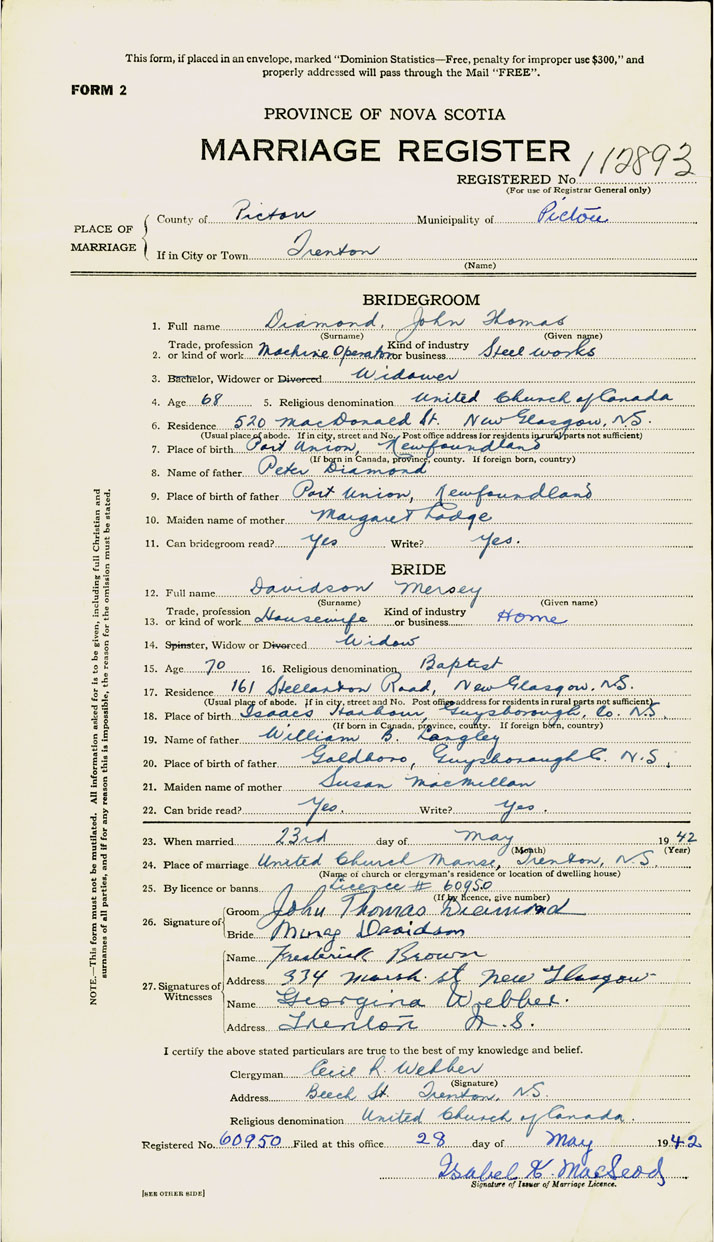 This form, if placed in an envelope, marked "Dominion Statistics—Free, penalty for improper use $300," and
properly addressed will pass through the Mail "FREE".
FORM 2
PROVINCE OF NOVA SCOTIA
MARRIAGE REGISTER
REGISTERED No. 112893
(For use of Registrar General only)
PLACE OF MARRIAGE
County of Pictou Municipality of Pictou
If in City or Town Trenton
(Name)
BRIDEGROOM
1. Full name Diamond, John Thomas
(Surname) (Given name)
2. Trade, profession or kind of work Machine Operator Kind of industry or business Steel works
3. Bachelor, Widower or Divorced Widower
4. Age 68 5. Religious denomination United Church of Canada
6. Residence 520 MacDonald St. New Glasgow, N.S.
(Usual place of abode. If in city, street and No. Post office address for residents in rural parts not sufficient)
7. Place of birth Port Union, Newfoundland
(If born in Canada, province, county. If foreign born, country)
8. Name of father Peter Diamond
9. Place of birth of father Port Union, Newfoundland
10. Maiden name of mother Margaret Lodge
11. Can bridegroom read? Yes Write? Yes.
BRIDE
12. Full name Davidson Mersey
(Surname) (Given name)
13. Trade, profession or kind of work Housewife Kind of industry or business Home
14. Spinster, Widow or Divorced Widow
15. Age 70 16. Religious denomination Baptist
17. Residence 161 Stellarton Road, New Glasgow, N.S.
(Usual place of abode. If in city, street and No. Post office address for residents in rural parts not sufficient)
18. Place of birth Isaacs Harbour, Guysborough, Co. N.S.
(If born in Canada, province, county. If foreign born, country)
19. Name of father William B. Langley
20. Place of birth of father Goldboro, Guysborough C. N.S.
21. Maiden name of mother Susan MacMillan
22. Can bride read? Yes. Write? Yes.
23. When married 23rd day of May 1942
(Month) (Year)
24. Place of marriage United Church Manse, Trenton, N.S.
(Name of church or clergyman's residence or location of dwelling house)
25. By licence or banns Licence # 60950
(If by licence, give number)
26. Signature of
Groom John Thomas Diamond
Bride Davidson
27. Signatures of Witnesses
Name Frederick Brown
Address 334 Marsh st New Glasgow
Name Georgina Webber.
Address Trenton N.S.
I certify the above stated particulars are true to the best of my knowledge and belief.
Clergyman Cecil R. Webber
(Signature)
Address Beech St. Trenton, N.S.
Religious denomination United Church of Canada.
Registered No. 60950 Filed at this office 28 day of May 1942
Isabel K. MacLeod
Signature of Issuer of Marriage Licence.
[SEE OTHER SIDE]
NOTE.—This form must not be mutilated. All information asked for is to be given, including full Christian and
surnames of all parties, and if for any reason this is impossible, the reason for the omission must be stated.